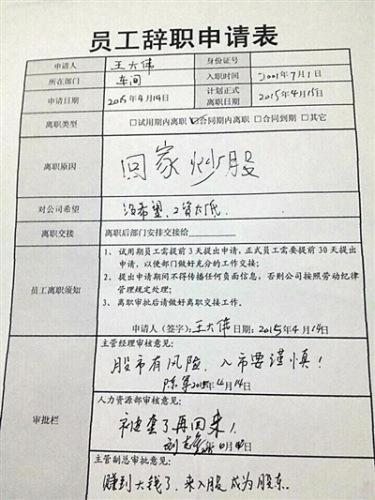 员工辞职申请表
申请人 王大伟 身份证号
所在部门 车间 入职时间 2001年7月1日
申请日期 2015年4月14日 计划正式离职日期 2015年4月15日
离职类型 □试用期内离职 ☑合同期内离职 □合同到期 □其它
离职原因 回家炒股
对公司希望 没希望,工资太低.
离职交接 离职后部门安排交接给
员工离职须知
1、试用期员工需提前3天提出申请,正式员工需要提前30天提出
申请,以便部门做好充分的工作交接;
2、提出申请期间不得传播任何负面信息,否则公司按照劳动纪律
管理规定处理;
3、离职审批后请做好离职交接工作。
申请人(签字):王大伟 日期:2015年4月14日
审批栏
主管经理审核意见:
股市有风险,入市要谨慎!
陈军 2015年4月14日
人力资源部审核意见:
被套了再回来!
4月14日
主管副总审批意见:
赚到大钱了,来入股成为股东.